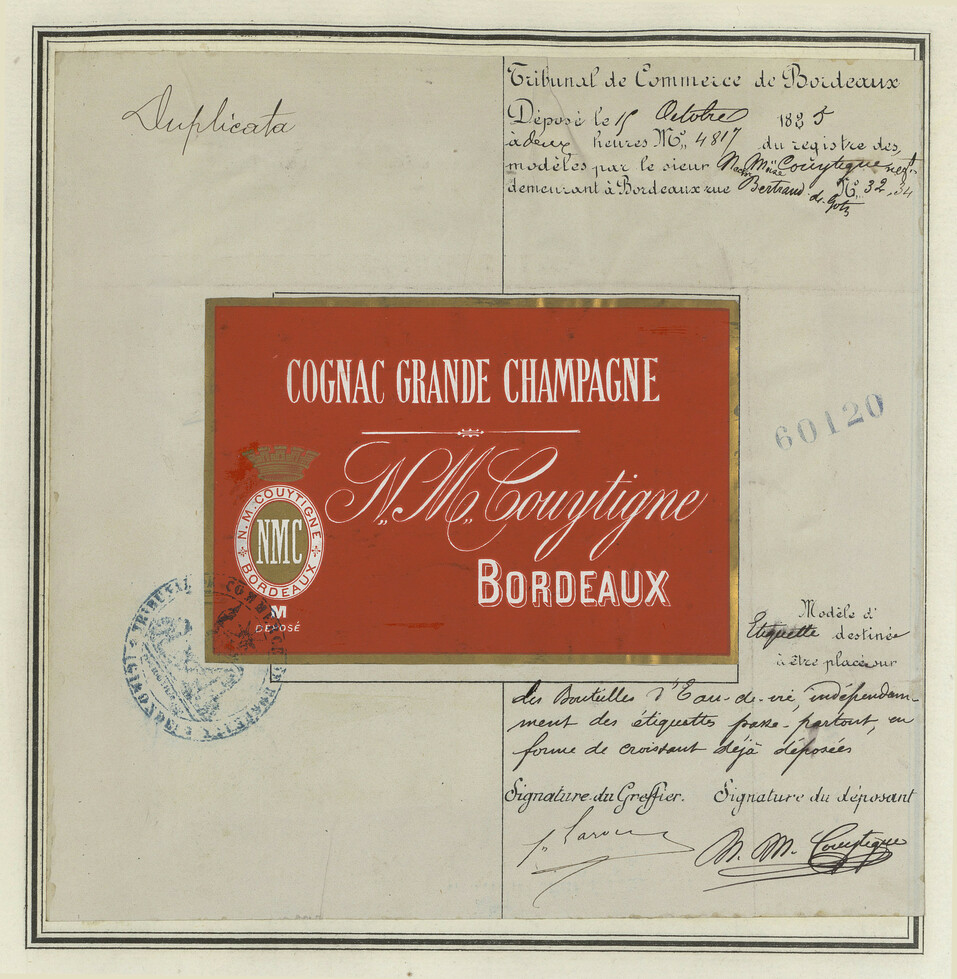 Duplicata
Tribunal de Commerce de Bordeaux
Déposé le 15 Octobre 1885
à deux heures N° 4817 du registre des
modèles par le sieur Couytigne negt
demeurant à Bordeaux rue Bertrand de Goth N° 32-34
COGNAC GRANDE CHAMPAGNE
N. M. Couytigne
BORDEAUX
N. M. COUYTIGNE
NMC
BORDEAUX
M
DÉPOSÉ
60120
Modèle d'
Etiquette destinée
à être placé sur
des Bouteilles d'Eau-de-vie, indépendam-
ment des étiquettes passe-partout, en
forme de croissant déjà déposées
Signature du Greffier. Signature du déposant
N. M. Couytigne